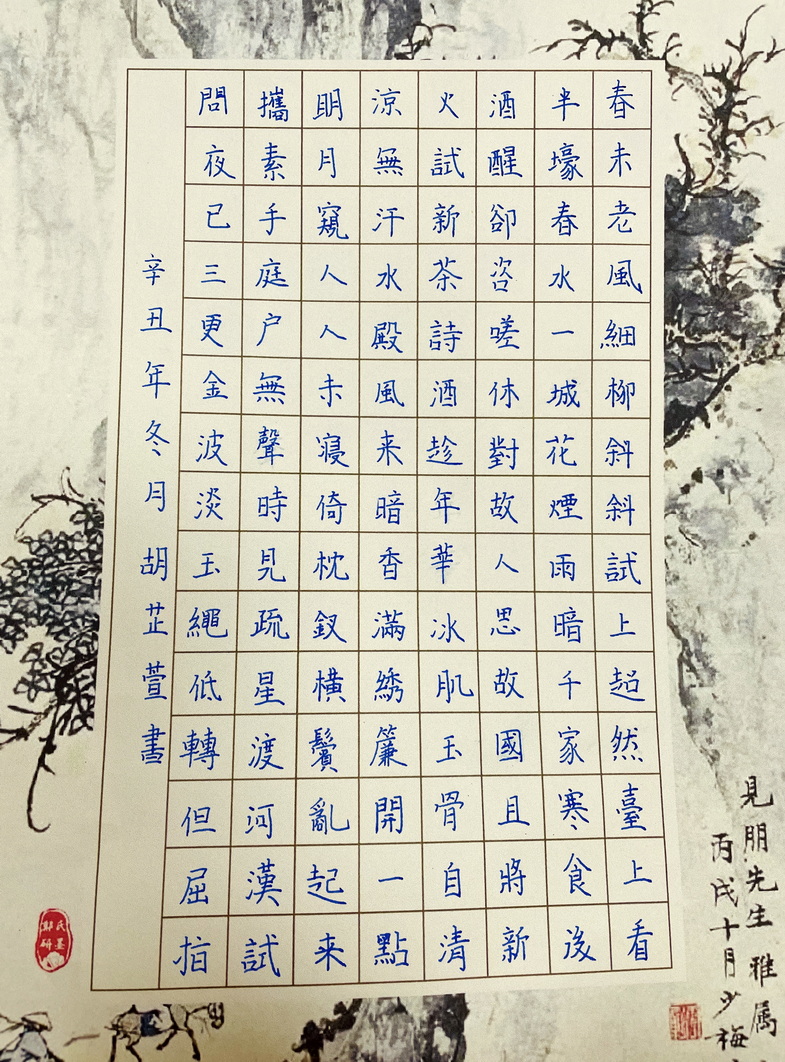 春未老風細柳斜斜試上超然臺上看
半壕春水一城花煙雨暗千家寒食後
酒醒卻咨嗟休對故人思故國且將新
火試新茶詩酒趁年華冰肌玉骨自清
涼無汗水殿風来暗香滿綉簾開一點
明月窺人人未寢倚枕釵橫鬢亂起来
攜素手庭户無聲時見疏星渡河漢試
問夜已三更金波淡玉繩低轉但屈指
辛丑年冬月胡芷萱書
見朋先生雅属
丙戌十月少梅